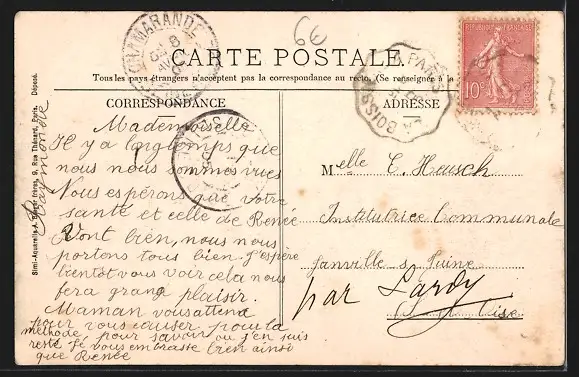 6E
CHAMARANDE
RÉPUBLIQUE FRANÇAISE
10c
CARTE POSTALE
Tous les pays étrangers n'acceptent pas la correspondance au recto. (Se renseigner à la
CORRESPONDANCE
ADRESSE
Mademoiselle
Il y a longtemps que
nous nous sommes vues
Nous espérons que votre
santé et celle de Renée
Vont bien, nous nous
portons tous bien. J'espère
bientôt vous voir cela nous
fera grand plaisir.
Maman vous attend
pour vous causer pour la
méthode pour savoir où j'en suis
resté Je vous embrasse bien ainsi
que Renée
Raymonde
Melle C. Hausch
Institutrice Communale
Janville s/ Juine
par Lardy
S. et Oise
Simi-Aquarelle A. Breger frères, 9, Rue Thénard, Paris. Déposé.